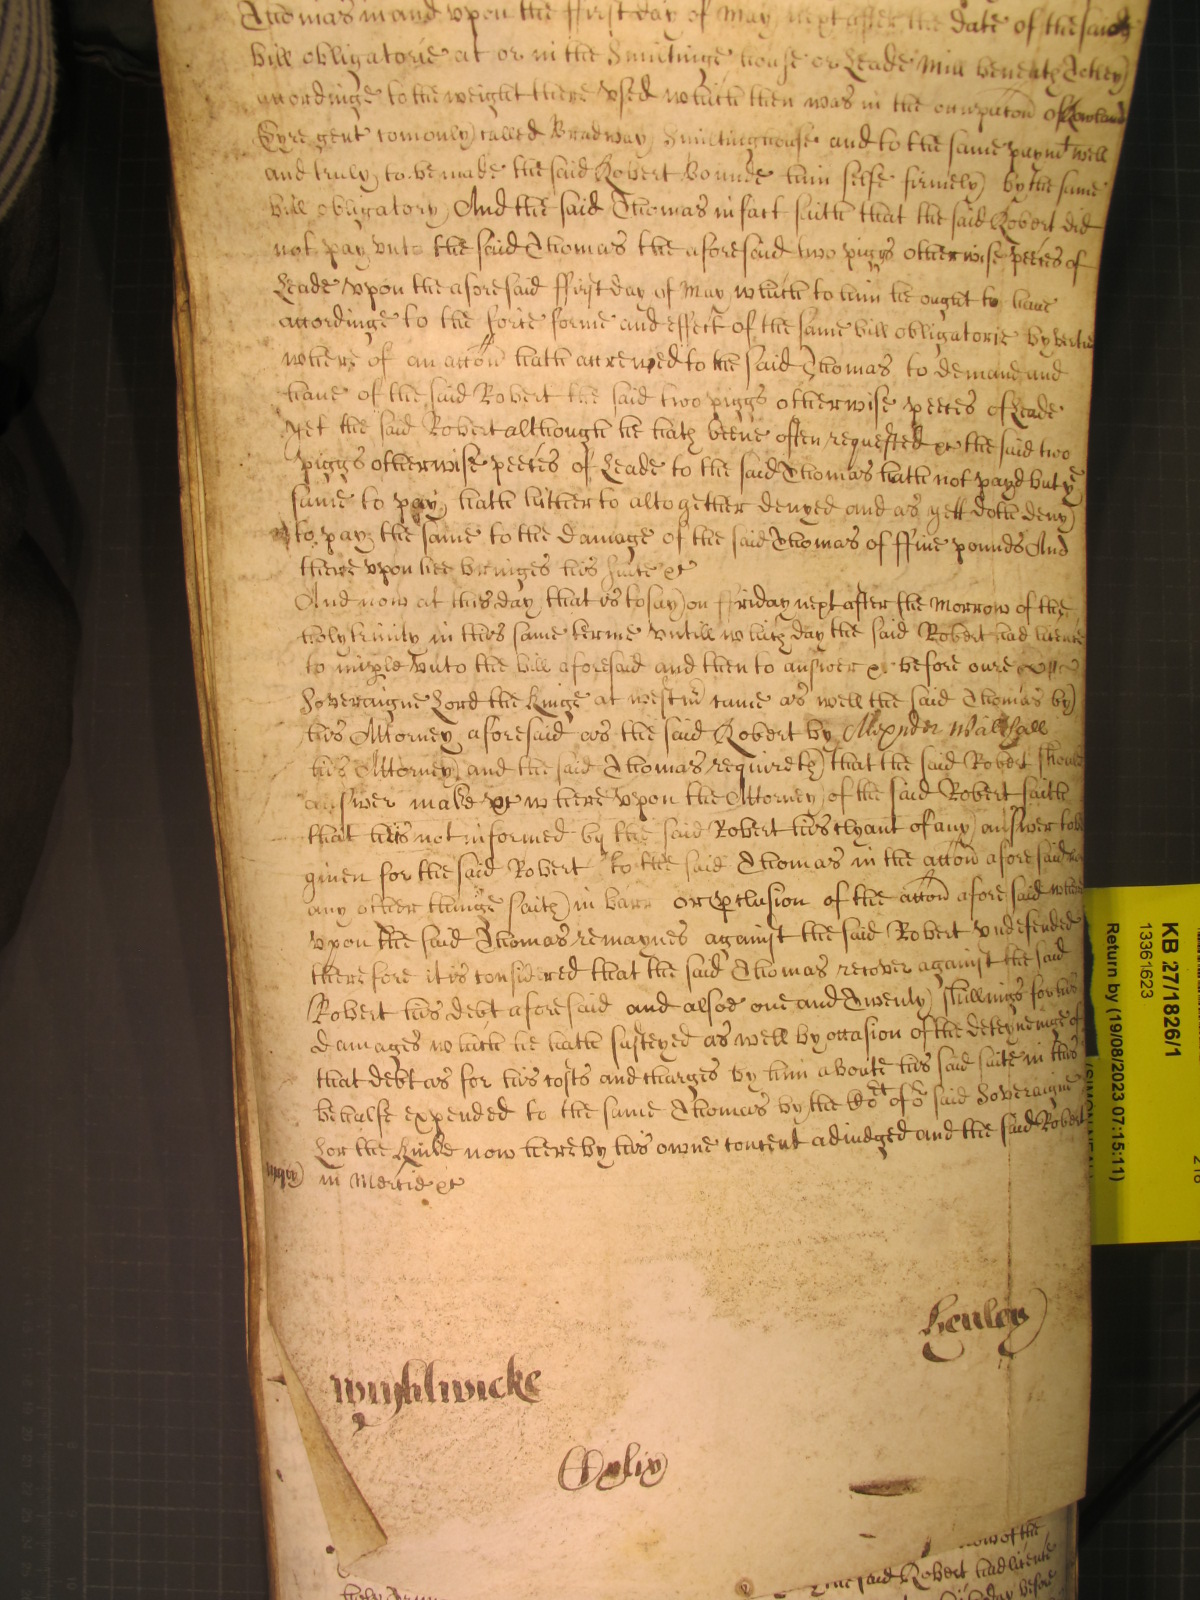 Thomas in and vpon the ffirst day of May next after the date of the said
bill obligatorie at or in the Smiltinge house or Leade Mill beneath Totley
accordinge to the weight there vsed which then was in the occupacon of Rowland
Eyre gent comonly called Bradway Smiltinghouse and to the same paymt well
and truly to be made the said Robert bounde him selfe firmely by the same
bill obligatory And the said Thomas in fact saith that the said Robert did
not pay vnto the said Thomas the aforesaid two piggs otherwise peeces of
Leade vpon the aforesaid ffirst day of May which to him he ought to haue
accordinge to the force forme and effect of the same bill obligatorie by vertue
where of an accon hath accrewed to the said Thomas to demand and
haue of the said Robert the said two piggs otherwise peeces of Leade
yet the said Robert although he hath beene often requested &c the said two
piggs otherwise peeces of Leade to the said Thomas hath not payd but ye
same to pay hath hitherto altogether denyed and as yett doth deny
to pay the same to the damage of the said Thomas of ffiue pounds And
there vpon hee bringes his suite &c
And now at this day that is to say on ffriday next after the Morrow of the
holy trinity in this same terme vntill which day the said Robert had licence
to imple vnto the bill aforesaid and then to answer &c before oure
Soveraigne Lord the Kinge at westm came as well the said Thomas by
his Attorney aforesaid as the said Robert by Alexnder Walthall
his Attorney and the said Thomas requireth that the said Robert should
answer make &c where vpon the Attorney of the said Robert saith
that he is not informed by the said Robert his clyant of any answer to be
giuen for the said Robert to the said Thomas in the accon aforesaid
any other thinge saith in barr or preclusion of the accon afore said where
vpon the said Thomas remaynes against the said Robert vndefended
therefore it is considered that the said Thomas recover against the said
Robert his debt aforesaid and alsoe one and Twenty shillings for his
damages which he hath susteyed as well by occasion of the deteyneinge of
that debt as for his costs and charges by him aboute his said suite in this
behalfe expended to the same Thomas by the Cot of or said Soveraigne
Lor the Kinke now here by his owne consent adiudged and the said Robert
in Mercie &c
Henley
Wightwicke
said Robert had licence